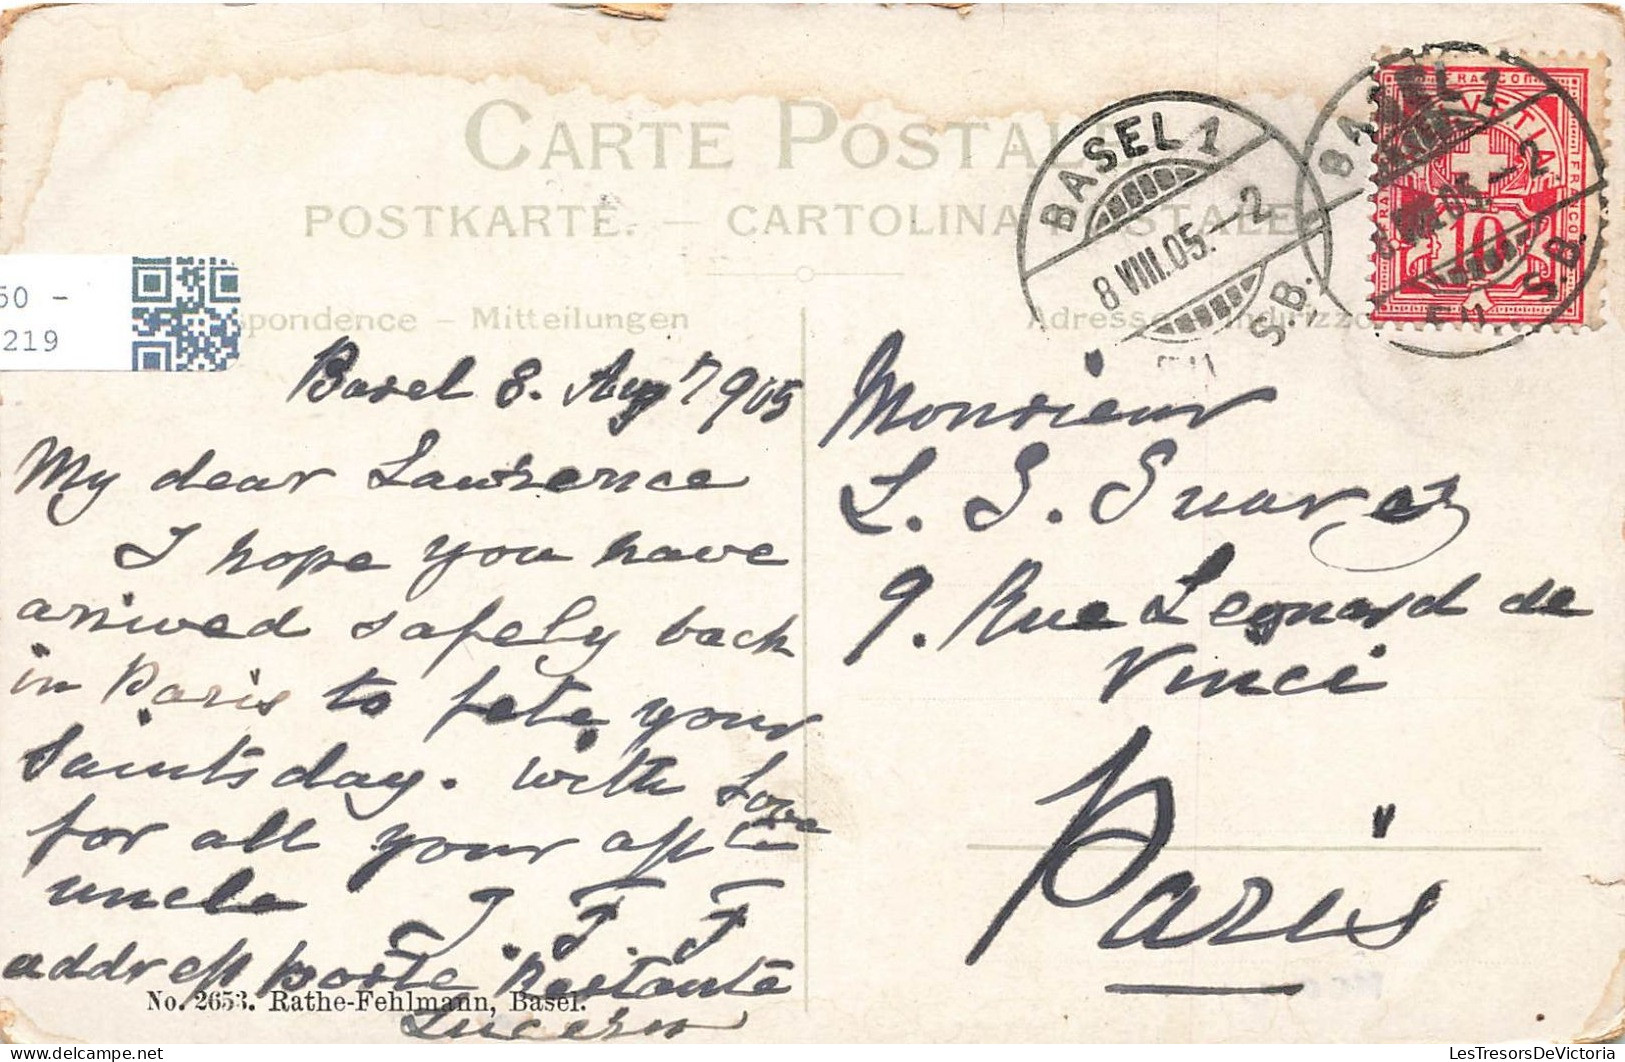 CARTE POSTALE
POSTKARTE. — CARTOLINA POSTALE
50 -
219
spondence – Mitteilungen
Adresse
BASEL 1
8 VIII.05.–2
S.B.
BASEL 1
VIII.05.–2
S.B.
FRANCO
HELVETIA
FRANCO
10
Basel 8. Aug 1905
My dear Lawrence
I hope you have
arrived safely back
in Paris to fete your
saint's day. With Love
for all your affte
uncle J. F. F
address poste Restante
Lucern
Monsieur
L. S. Suarez
9. Rue Leonard de
Vinci
Paris
No. 2653. Rathe-Fehlmann, Basel.
LesTresorsDeVictoria